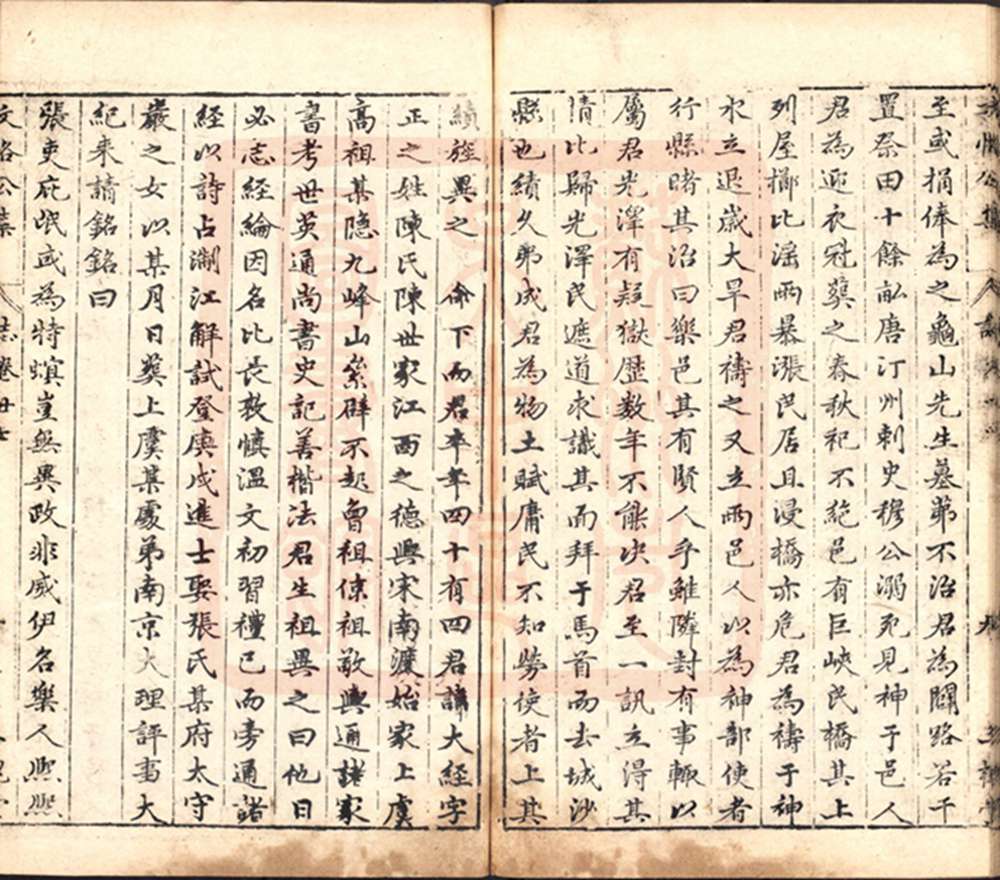 至或捐俸為之龜山先生墓茀不治君為闢路若干
置祭田十餘畝唐汀州刺史穆公溺死見神于邑人
君為迎衣冠䔳之春秋祀不絶邑有巨峽民橋其上
列屋櫛比滛雨暴漲民居且浸橋亦危君為禱于神
水立退歲大旱君禱之又立雨邑人以為神部使者
行縣睹其治曰樂邑其有賢人乎雖隣封有事輙以
屬君光澤有疑獄歷數年不能决君至一訊立得其
情比歸光澤民遮道求識其而拜于馬首而去城沙
縣也績久弟成君為物土賦庸民不知勞使者上其
績旌異之 命下而君卒年四十有四君諱大經字
正之姓陳氏陳世家江西之德興宋南渡始家上虞
高祖某隐九峰山絫辟不起曾祖倞祖敬興通諸家
書考世英通尚書史記善楷法君生祖異之曰他日
必志經綸因名比長敦慎溫文初習禮已而旁通諸
經以詩占淛江解試登庚戍進士娶張氏某府太守
巖之女以某月日葬上虞某處弟南京大理評事大
紀来請銘銘曰
張吏庇氓或為特螟豈無異政非威伊名樂人熈熈
文恪公集 志卷廿七